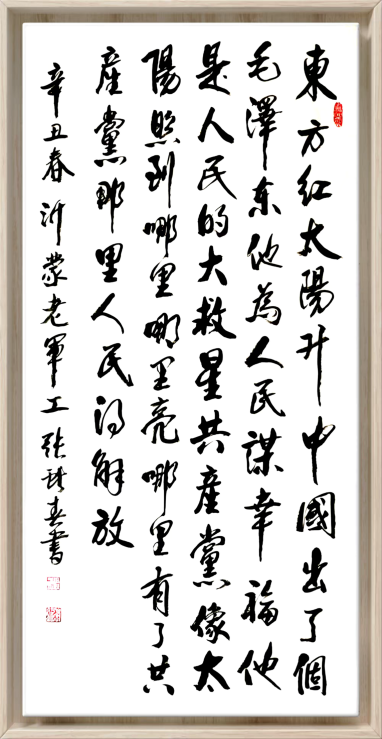 東方红太陽升中國出了個
毛澤东他為人民謀幸福他
是人民的大救星共產黨像太
陽照到哪里哪里亮哪里有了共
産黨那里人民得解放
辛丑春沂蒙老軍工張
春書